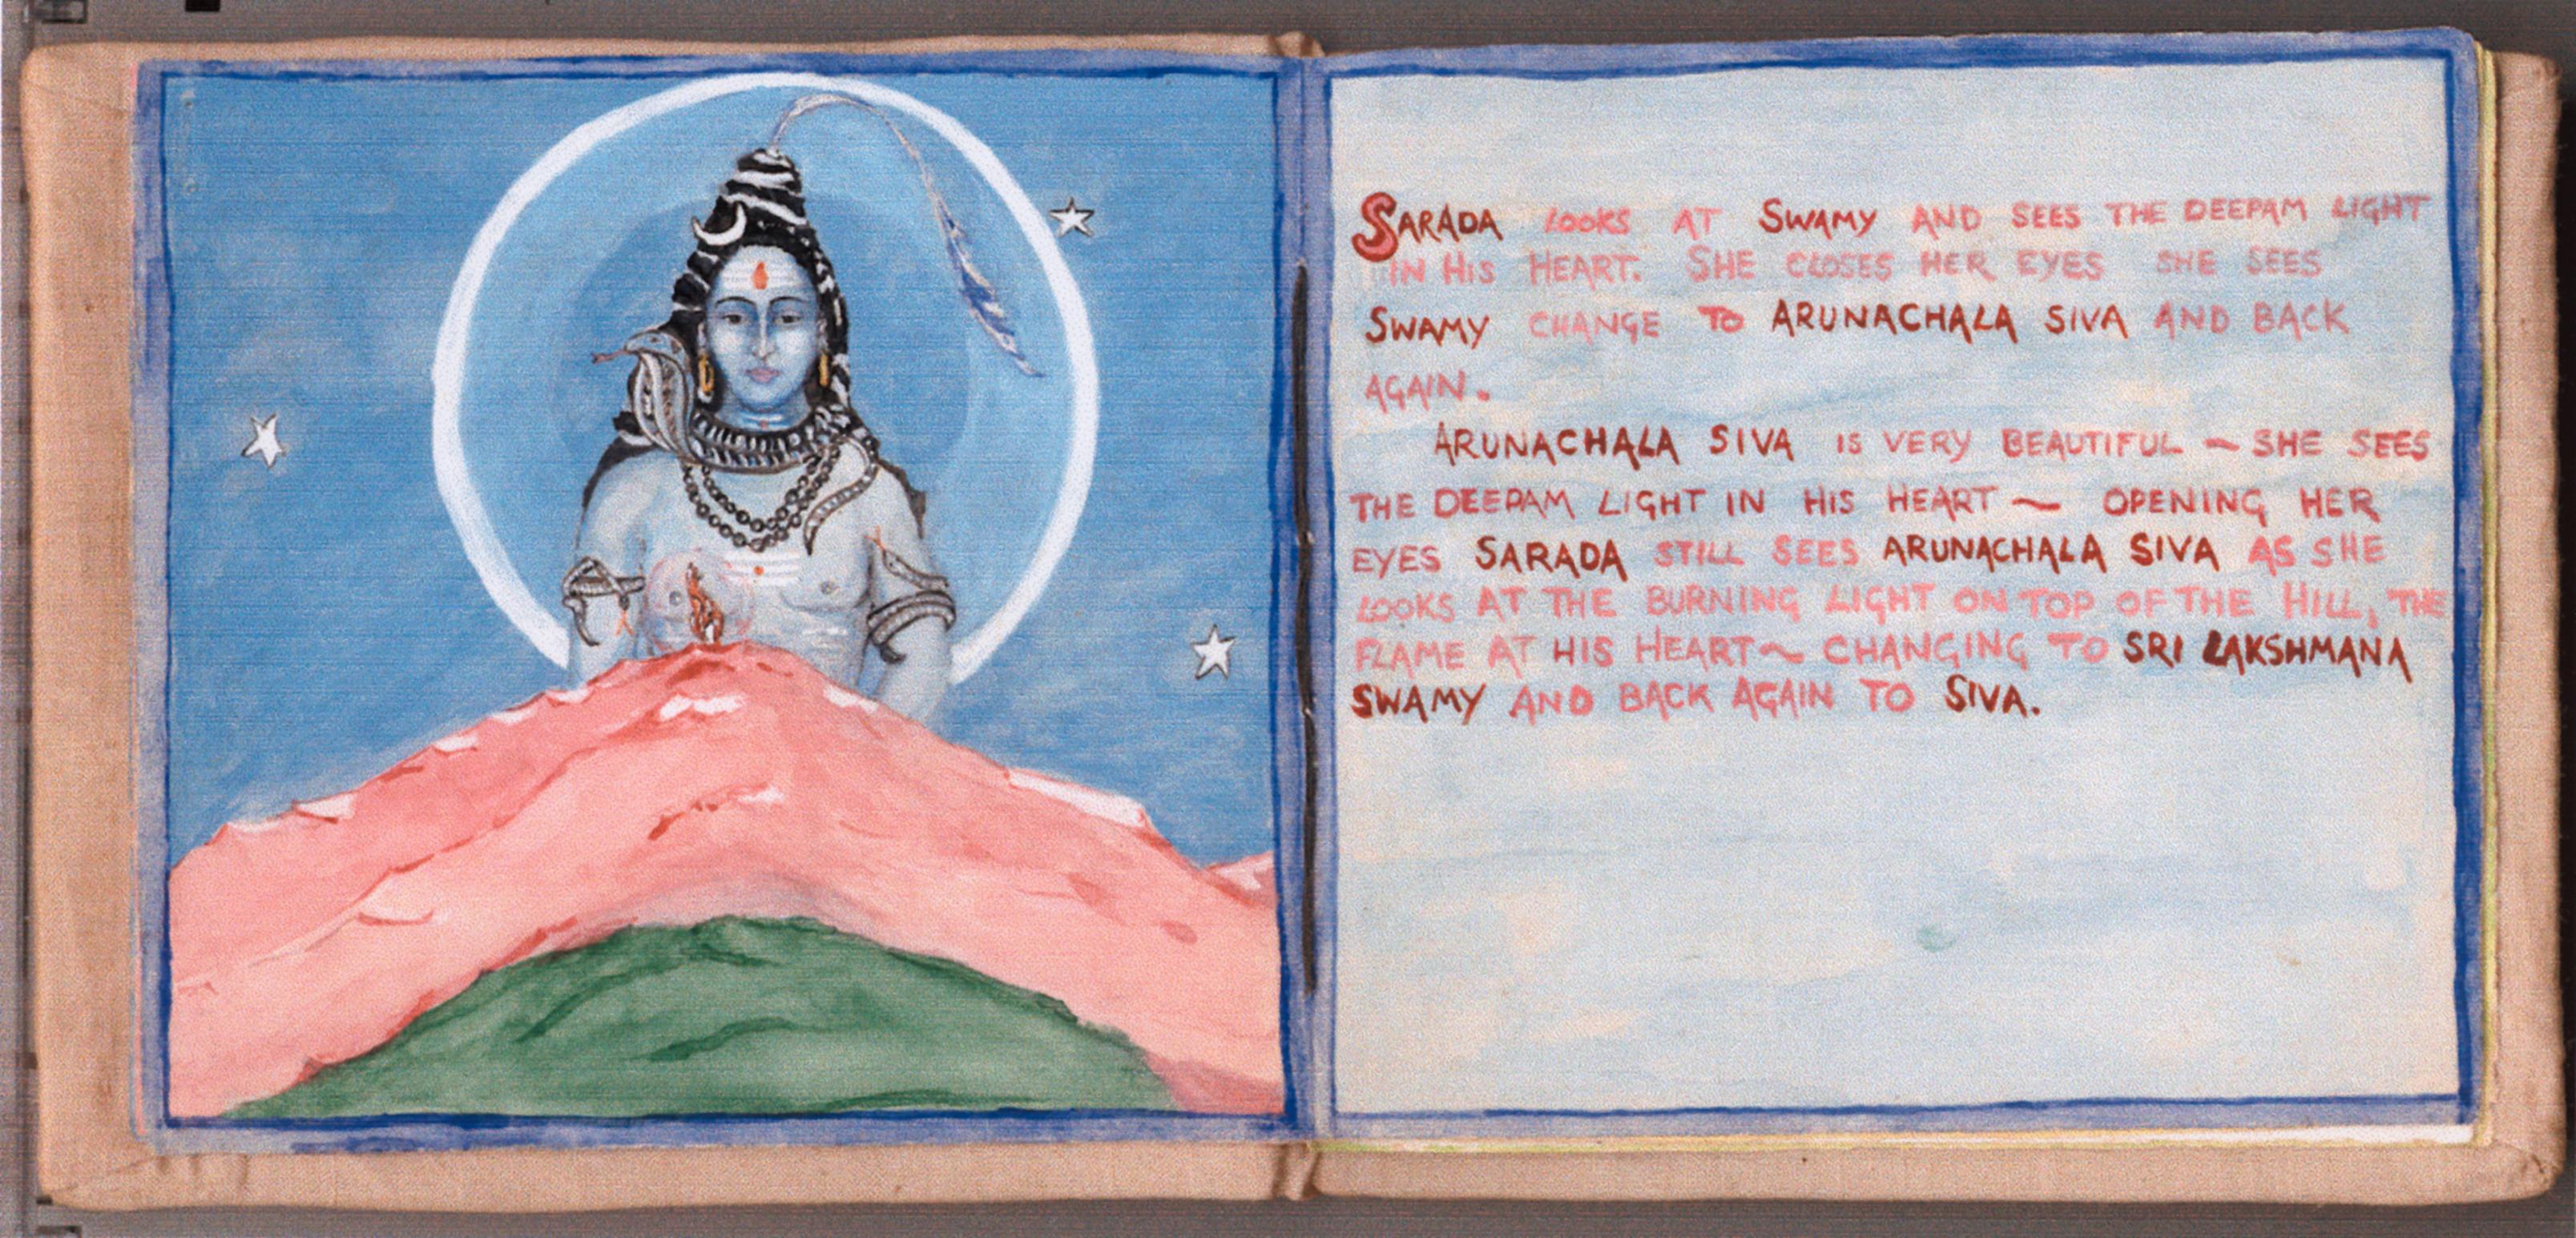 SARADA LOOKS AT SWAMY AND SEES THE DEEPAM LIGHT
IN HIS HEART. SHE CLOSES HER EYES SHE SEES
SWAMY CHANGE TO ARUNACHALA SIVA AND BACK
AGAIN.
ARUNACHALA SIVA IS VERY BEAUTIFUL ~ SHE SEES
THE DEEPAM LIGHT IN HIS HEART ~ OPENING HER
EYES SARADA STILL SEES ARUNACHALA SIVA AS SHE
LOOKS AT THE BURNING LIGHT ON TOP OF THE HILL, THE
FLAME AT HIS HEART ~ CHANGING TO SRI LAKSHMANA
SWAMY AND BACK AGAIN TO SIVA.